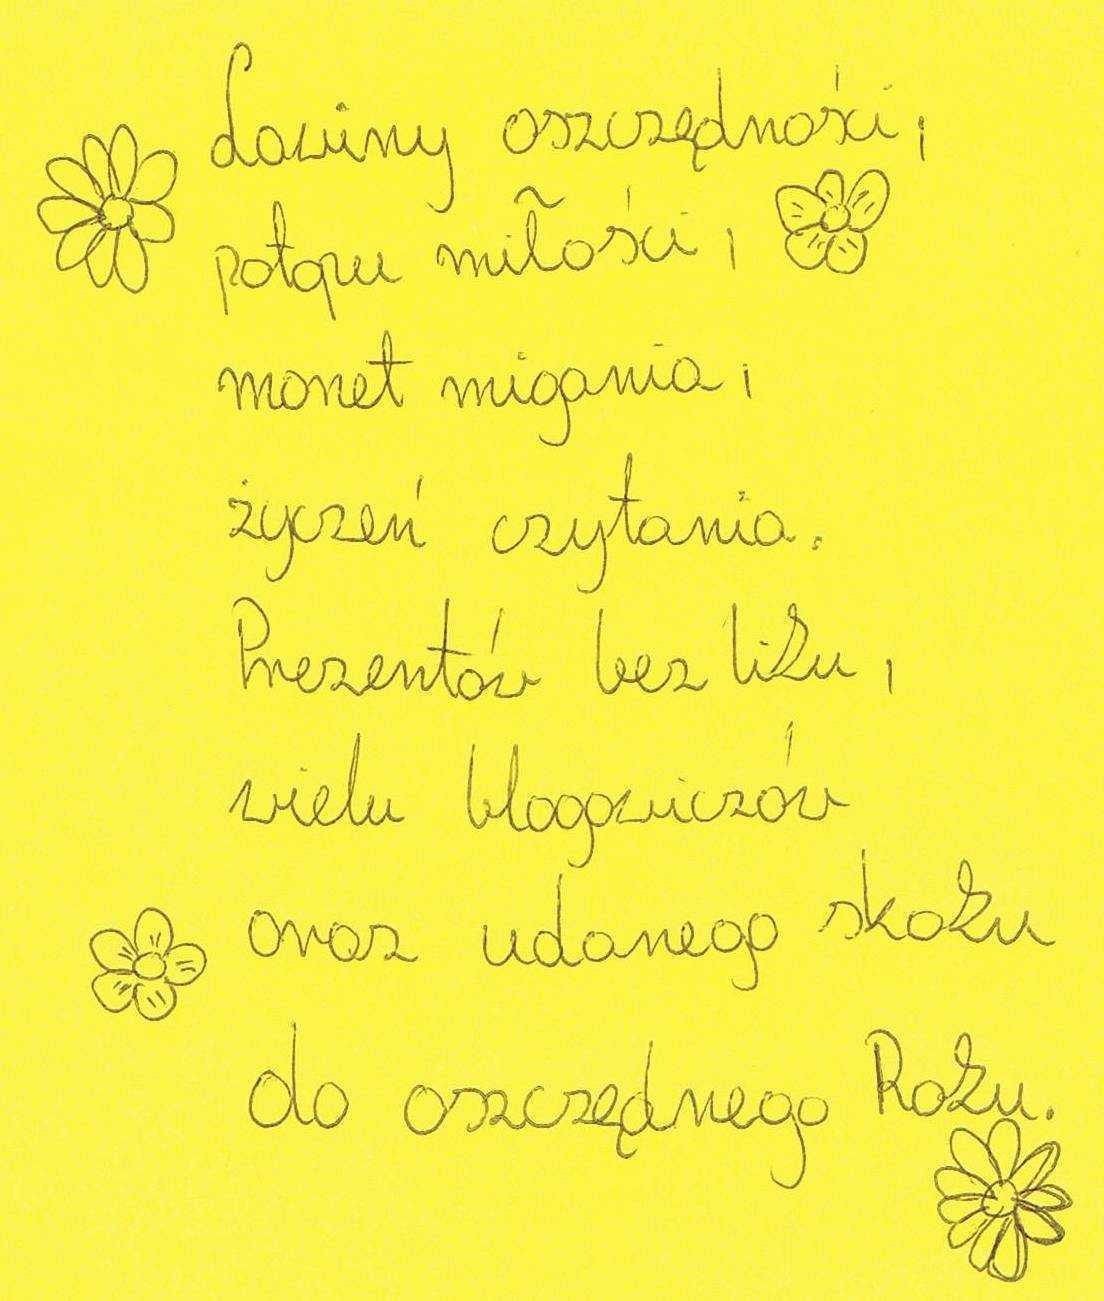 Lawiny oszczędności,
potopu miłości,
monet migania,
życzeń czytania.
Prezentów bez liku,
wielu blogowiczów
oraz udanego skoku
do oszczędnego Roku.